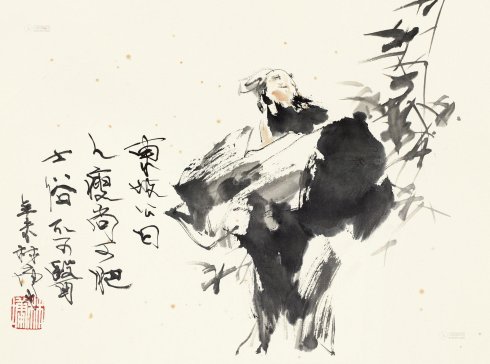 東坡公曰
人瘦尚可肥
士俗不可醫
辛未林墉